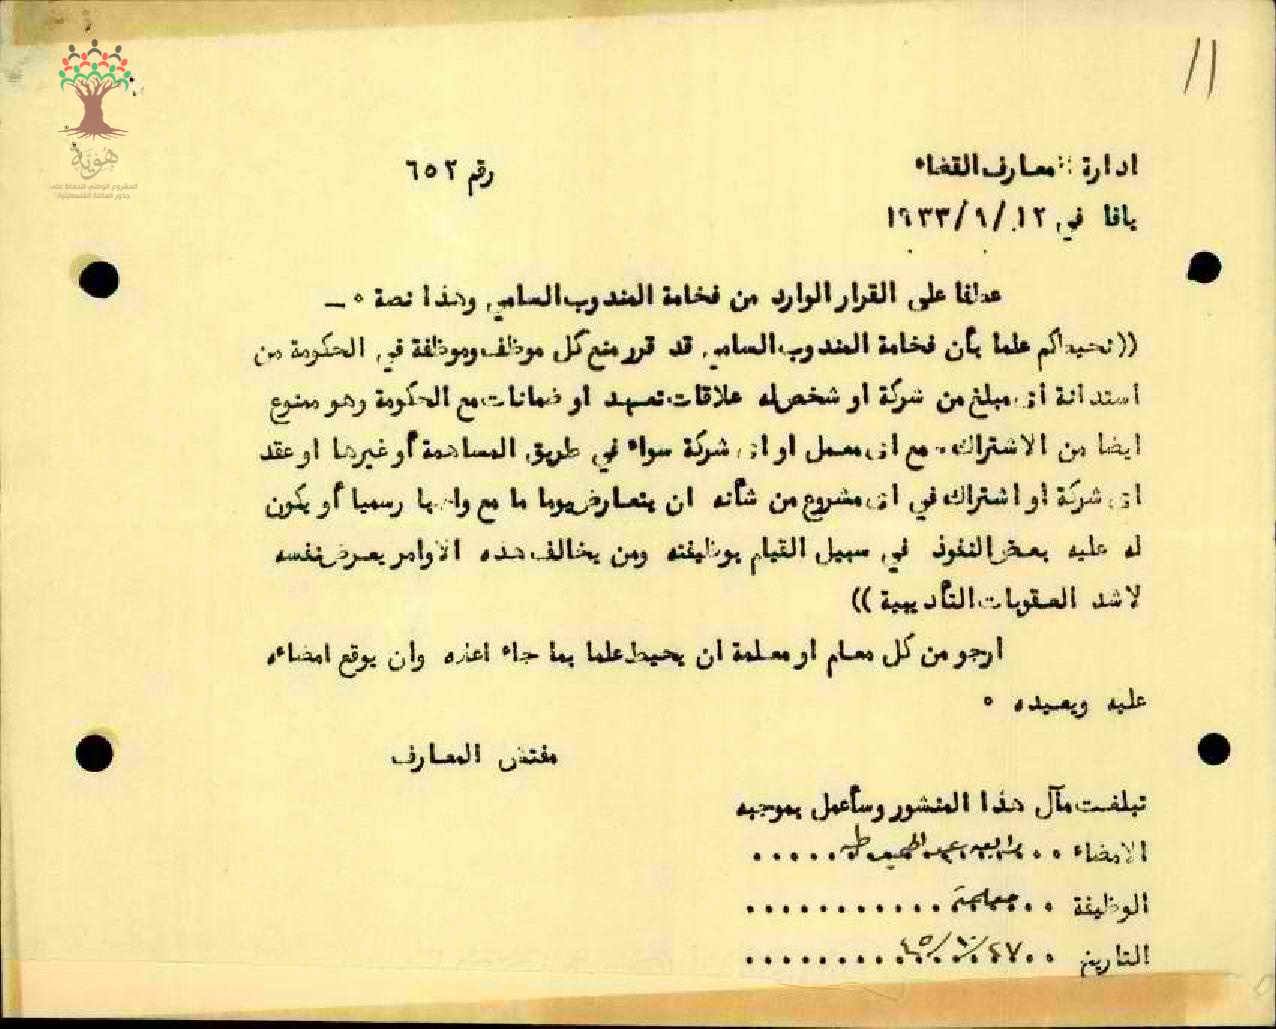 ١١
هُوِيَّة
المشروع الوطني للحفاظ على
جذور العائلة الفلسطينية
ادارة معارف القضاء
رقم ٦٥٢
يافا في ١٢/٩/١٩٣٣
عطفا على القرار الوارد من فخامة المندوب السامي وهذا نصة ٠ــ
((نحيطكم علما بأن فخامة المندوب السامي قد قرر منع كل موظف وموظفة في الحكومة من
استدانة أي مبلغ من شركة او شخص له علاقات تعهد او ضمانات مع الحكومة وهو ممنوع
ايضا من الاشتراك مع اي معمل او اي شركة سواء في طريق المساهمة أو غيرها او عقد
اي شركة او اشتراك في اي مشروع من شأنه ان يتعارض يوما ما مع رسميا أو يكون
له عليه بعض النفوذ في سبيل القيام بوظيفته ومن يخالف هذه الاوامر يعرض نفسه
لاشد العقوبات التأديبية))
ارجو من كل معلم او معلمة ان يحيط علما بما جاء اعلاه وان يوقع امضاءه
عليه ويعيده ٠
مفتش المعارف
تبلغت مآل هذا المنشور وسأعمل بموجبه
الامضاء عبد طه
الوظيفة معلمة
التاريخ ٤٧/١٠/٤٥